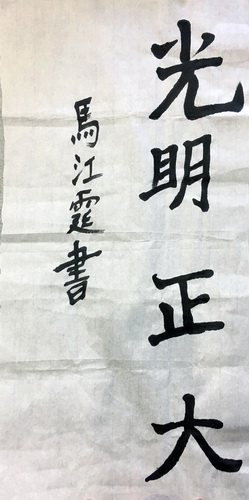 光明正大
馬江霆書